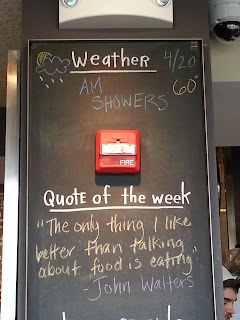 Weather 4/20
AM 60°
SHOWERS
FIRE
QUOTE OF THE WEEK
"The only thing I like
better than talking
about food is eating"
- John Walters